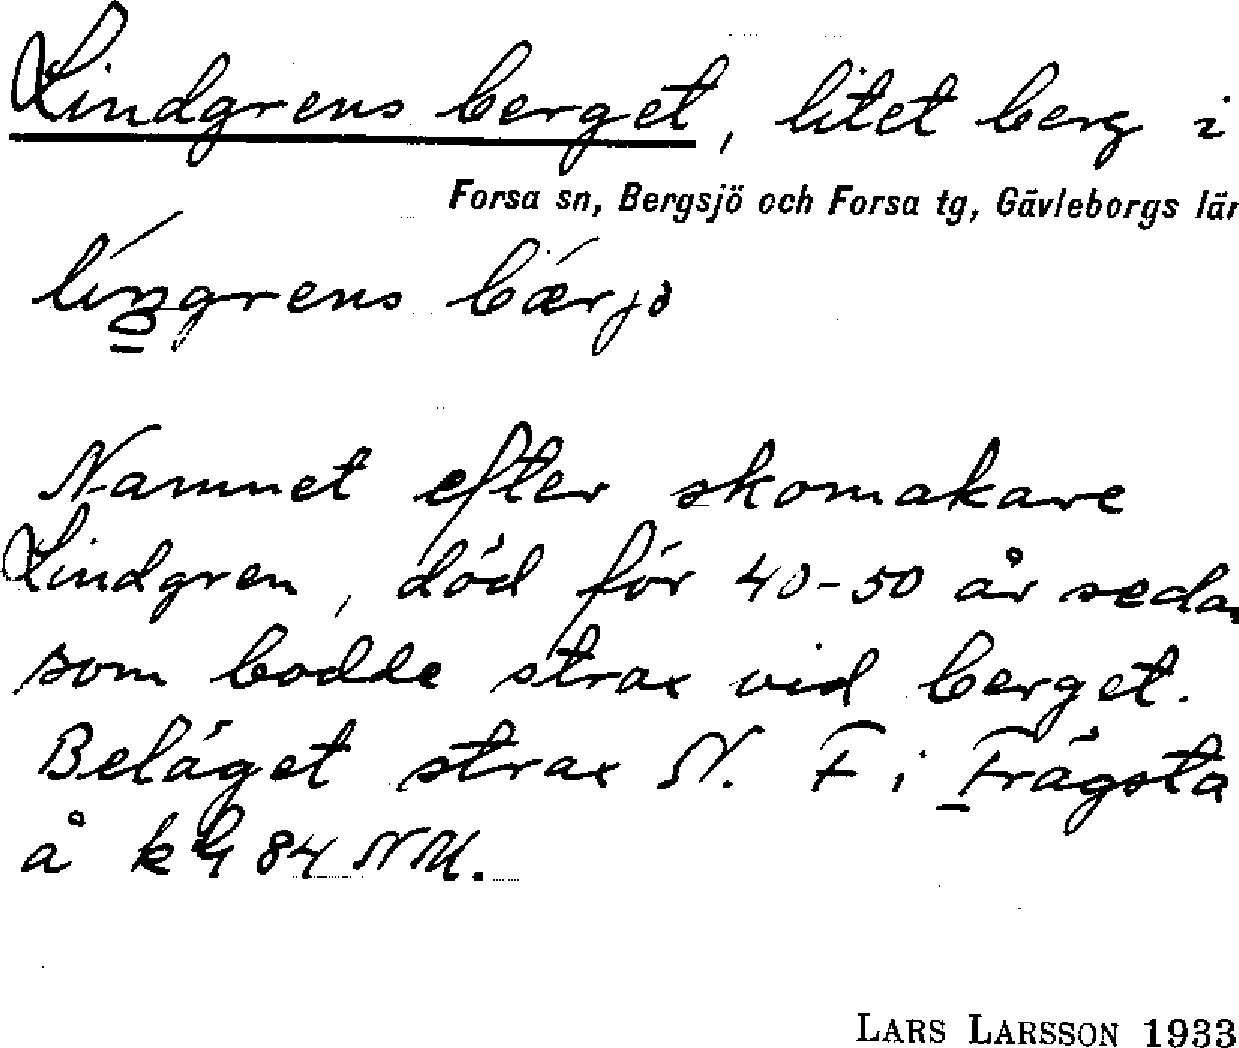 Lindgrens berget, litet berg i
Forsa sn, Bergsjö och Forsa tg, Gävleborgs län
Namnet efter skomakare
Lindgren, död för 40-50 år sedan
som bodde strax vid berget.
Beläget strax N. F i Frägsta
å kbl 84 NM.
LARS LARSSON 1933